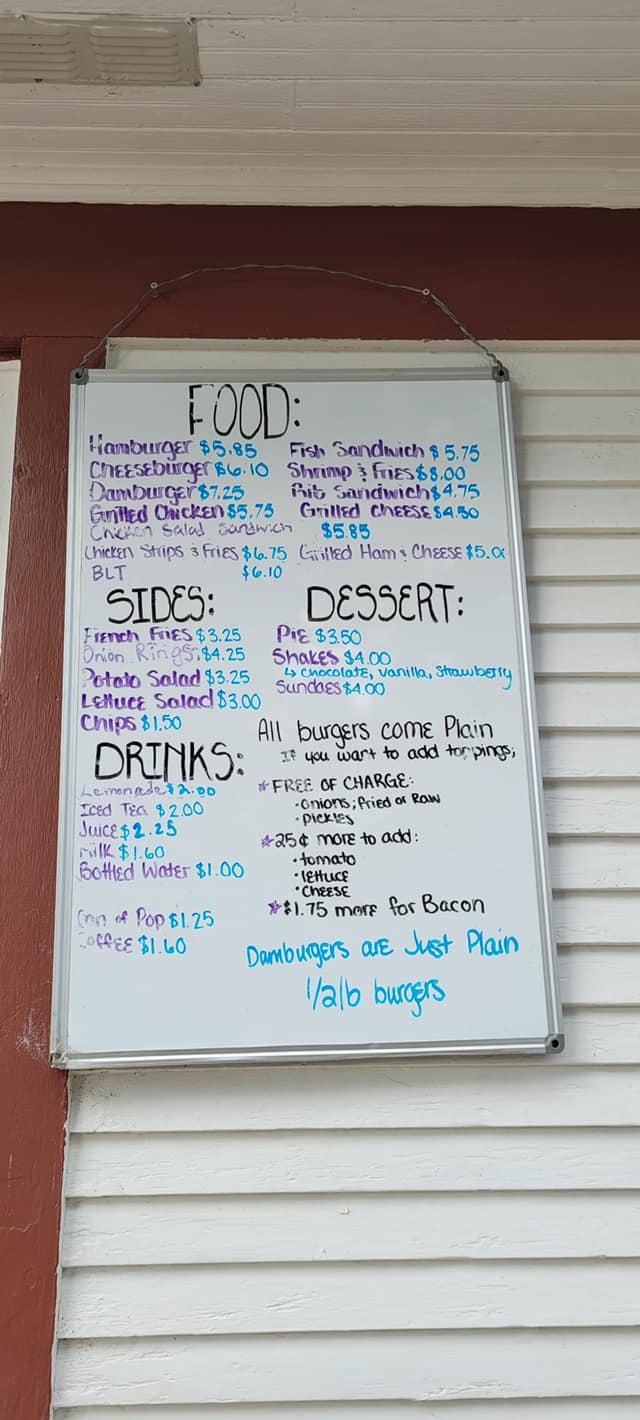 FOOD:
Hamburger $5.85
Cheeseburger $6.10
Damburger $7.25
Grilled Chicken $5.75
Chicken Salad Sandwich $5.85
Chicken Strips & Fries $6.75
BLT $6.10
Fish Sandwich $5.75
Shrimp & Fries $8.00
Rib Sandwich $4.75
Grilled Cheese $4.50
Grilled Ham & Cheese
SIDES:
French Fries $3.25
Onion Rings $4.25
Potato Salad $3.25
Lettuce Salad $3.00
Chips $1.50
DESSERT:
Pie $3.50
Shakes $4.00
↳ Chocolate, Vanilla, Strawberry
Sundaes $4.00
DRINKS:
Lemonade $2.00
Iced Tea $2.00
Juice $2.25
Milk $1.60
Bottled Water $1.00
Can of Pop $1.25
Coffee $1.60
All burgers come Plain
If you want to add toppings;
* FREE OF CHARGE:
• Onions; Fried or Raw
• Pickles
* 25¢ more to add:
• tomato
• lettuce
• Cheese
* $1.75 more for Bacon
Damburgers are Just Plain
1/2lb burgers